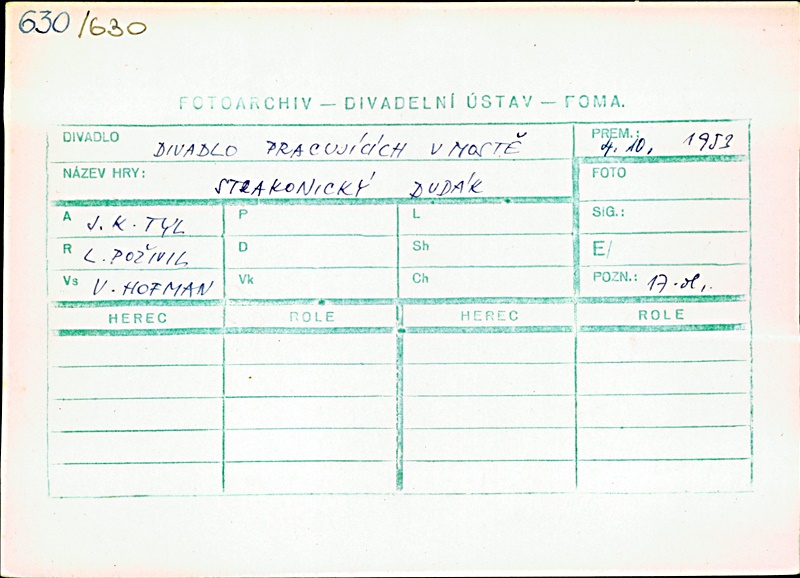 630/630
FOTOARCHIV — DIVADELNÍ ÚSTAV — FOMA.
DIVADLO DIVADLO PRACUJÍCÍCH V MOSTĚ PREM.: 4. 10. 1953
NÁZEV HRY: STRAKONICKÝ DUDÁK FOTO
A J. K. TYL P L SIG.:
R L. POŽIVIL D Sh E/
Vs V. HOFMAN Vk Ch POZN.: 17.
HEREC ROLE HEREC ROLE